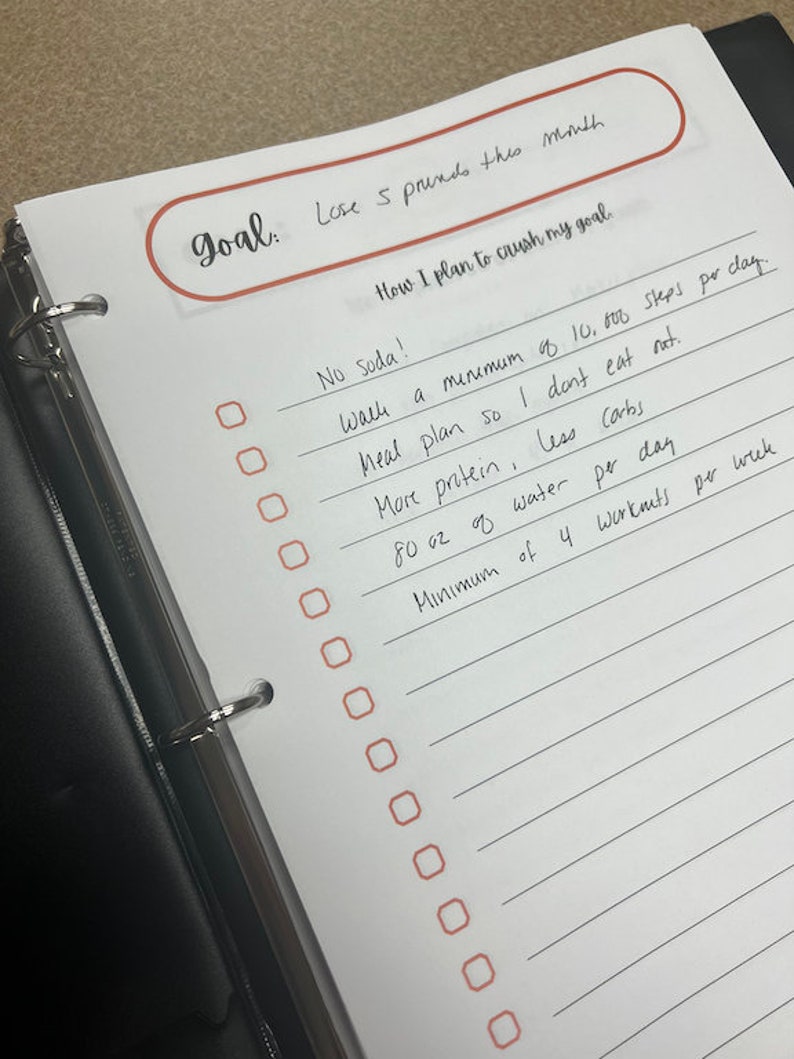 Goal: Lose 5 pounds this month
How I plan to crush my goal.
No soda!
Walk a minimum of 10,000 steps per day.
Meal plan so I dont eat out.
More protein, less carbs
80 oz of water per day
Minimum of 4 workouts per week